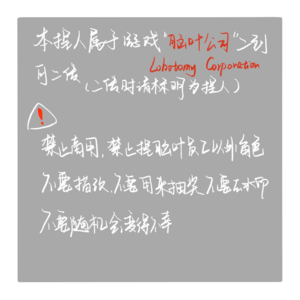 本捏人属于游戏"脑叶公司"二创
Lobotomy Corporation
可二传
(二传时请标明为捏人)
!
禁止商用,禁止捏脑叶员工以外角色
不要指改,不要用来抽奖,不要去水印
不要随机会变得不幸